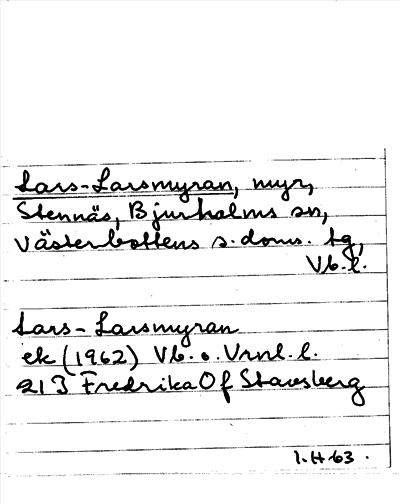 Lars-Larsmyran, myr,
Stennäs, Bjurholms sn,
Västerbottens s. doms. tg,
Vb. l.
Lars-Larsmyran
ek (1962) Vb. o. Vrml. l.
21 J Fredrika Of Stavsberg
I. H 63.